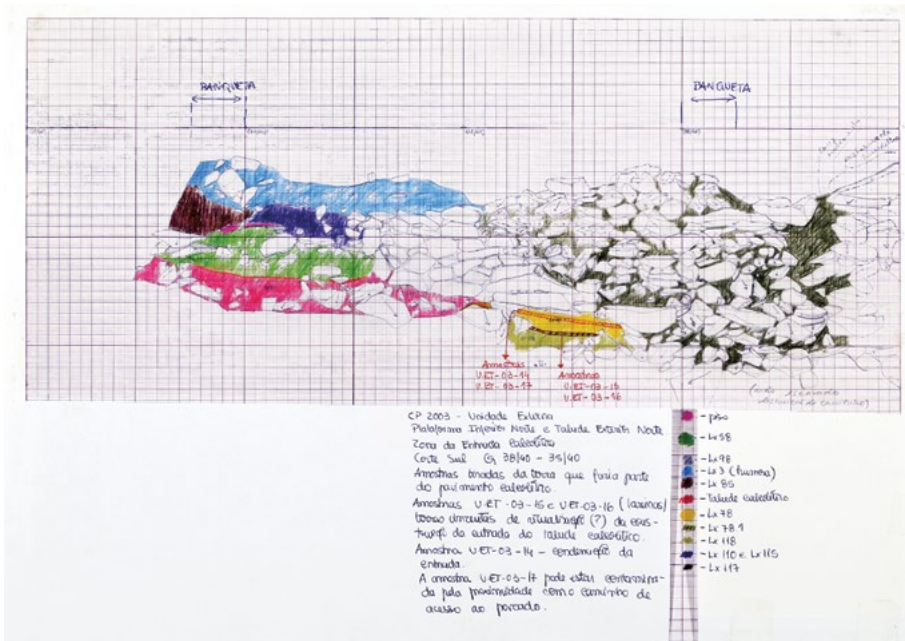 BANQUETA
BANQUETA
Amostras
U.ET-03-14
U.ET-03-17
Amostras
U.ET-03-15
U.ET-03-16
CP 2003 - Unidade Externa
Plataforma Inferior Norte e Talude Exterior Norte
Zona da Entrada Calcolítica
Corte Sul G 38/40 - 35/40
Amostras tiradas da terra que faria parte
do pavimento calcolítico.
Amostras U.ET-03-15 e U.ET-03-16
da
da entrada do talude calcolítico.
Amostra U.ET-03-14 - condenação da
entrada.
A amostra U.ET-03-17 pode estar contamina-
da pela proximidade com o caminho de
acesso ao povoado.
- piso
- Lx 58
- Lx 98
- Lx 3 (humosa)
- Lx 85
- Talude calcolítico
- Lx 78
- Lx 78.1
- Lx 118
- Lx 110 e Lx 115
- Lx 117